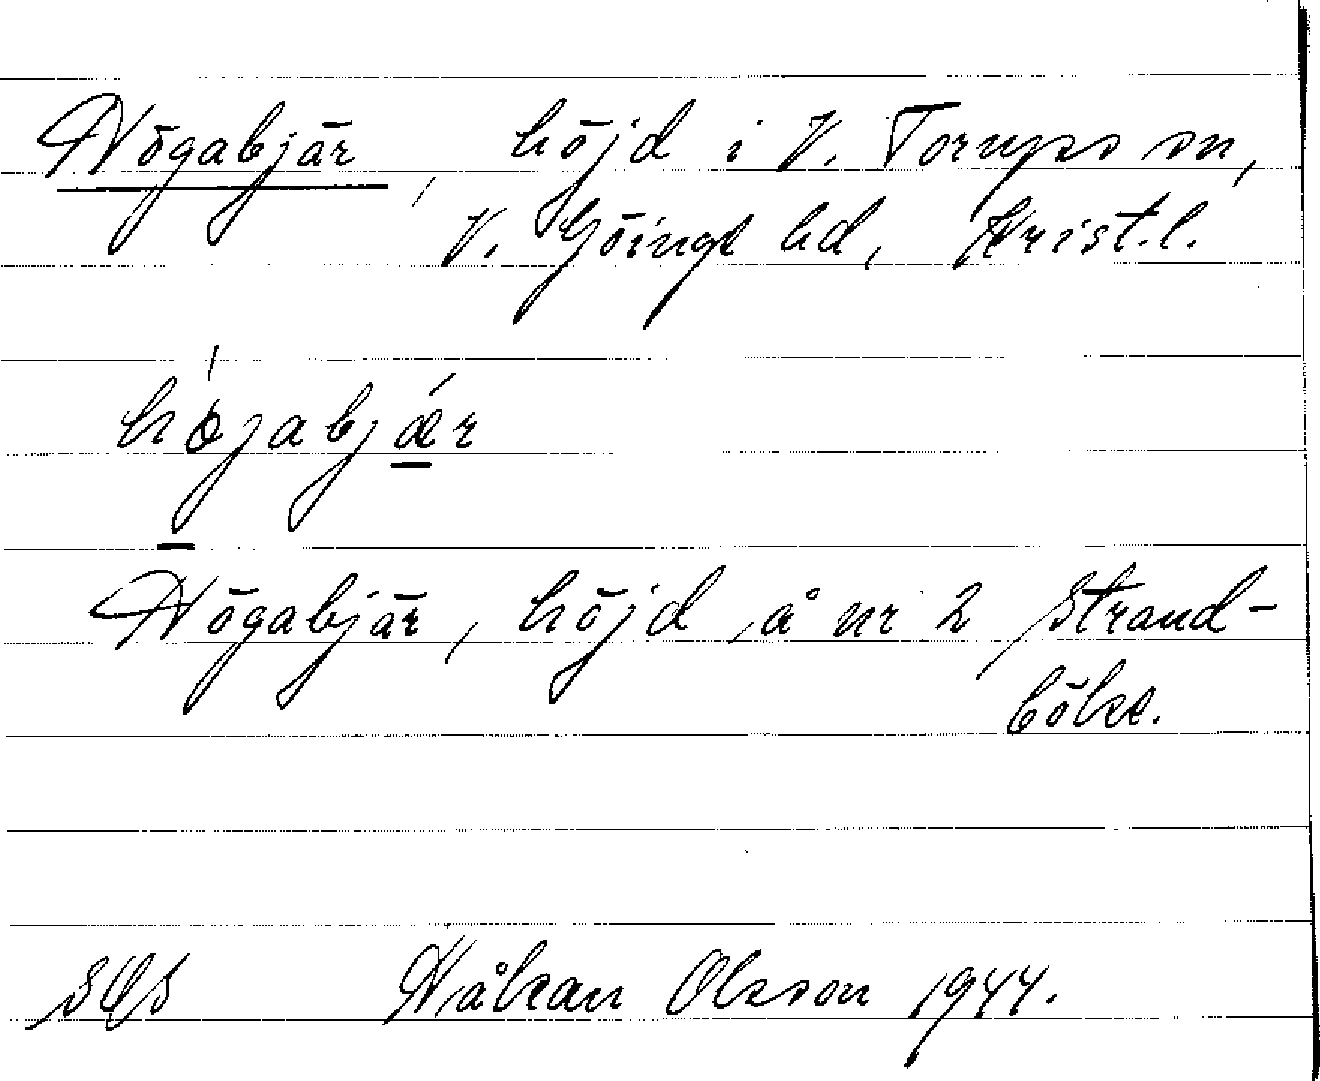 Högabjär, höjd i V. Torups sn,
V. Göinge hd, Krist.l.
högabjær
Högabjär, höjd å nr 2 Strand-
böke.
Håkan Olsson 1944.